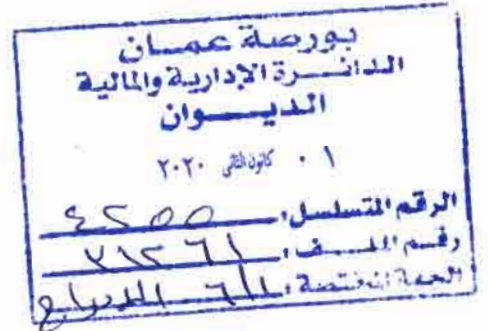 بورصة عمان
الدائرة الإدارية والمالية
الديوان
٠١ كانون الثاني ٢٠٢٠
الرقم المتسلسل: ٤٢٥٥
رقم الملف: ٣١٢٦١
الجهة المختصة: